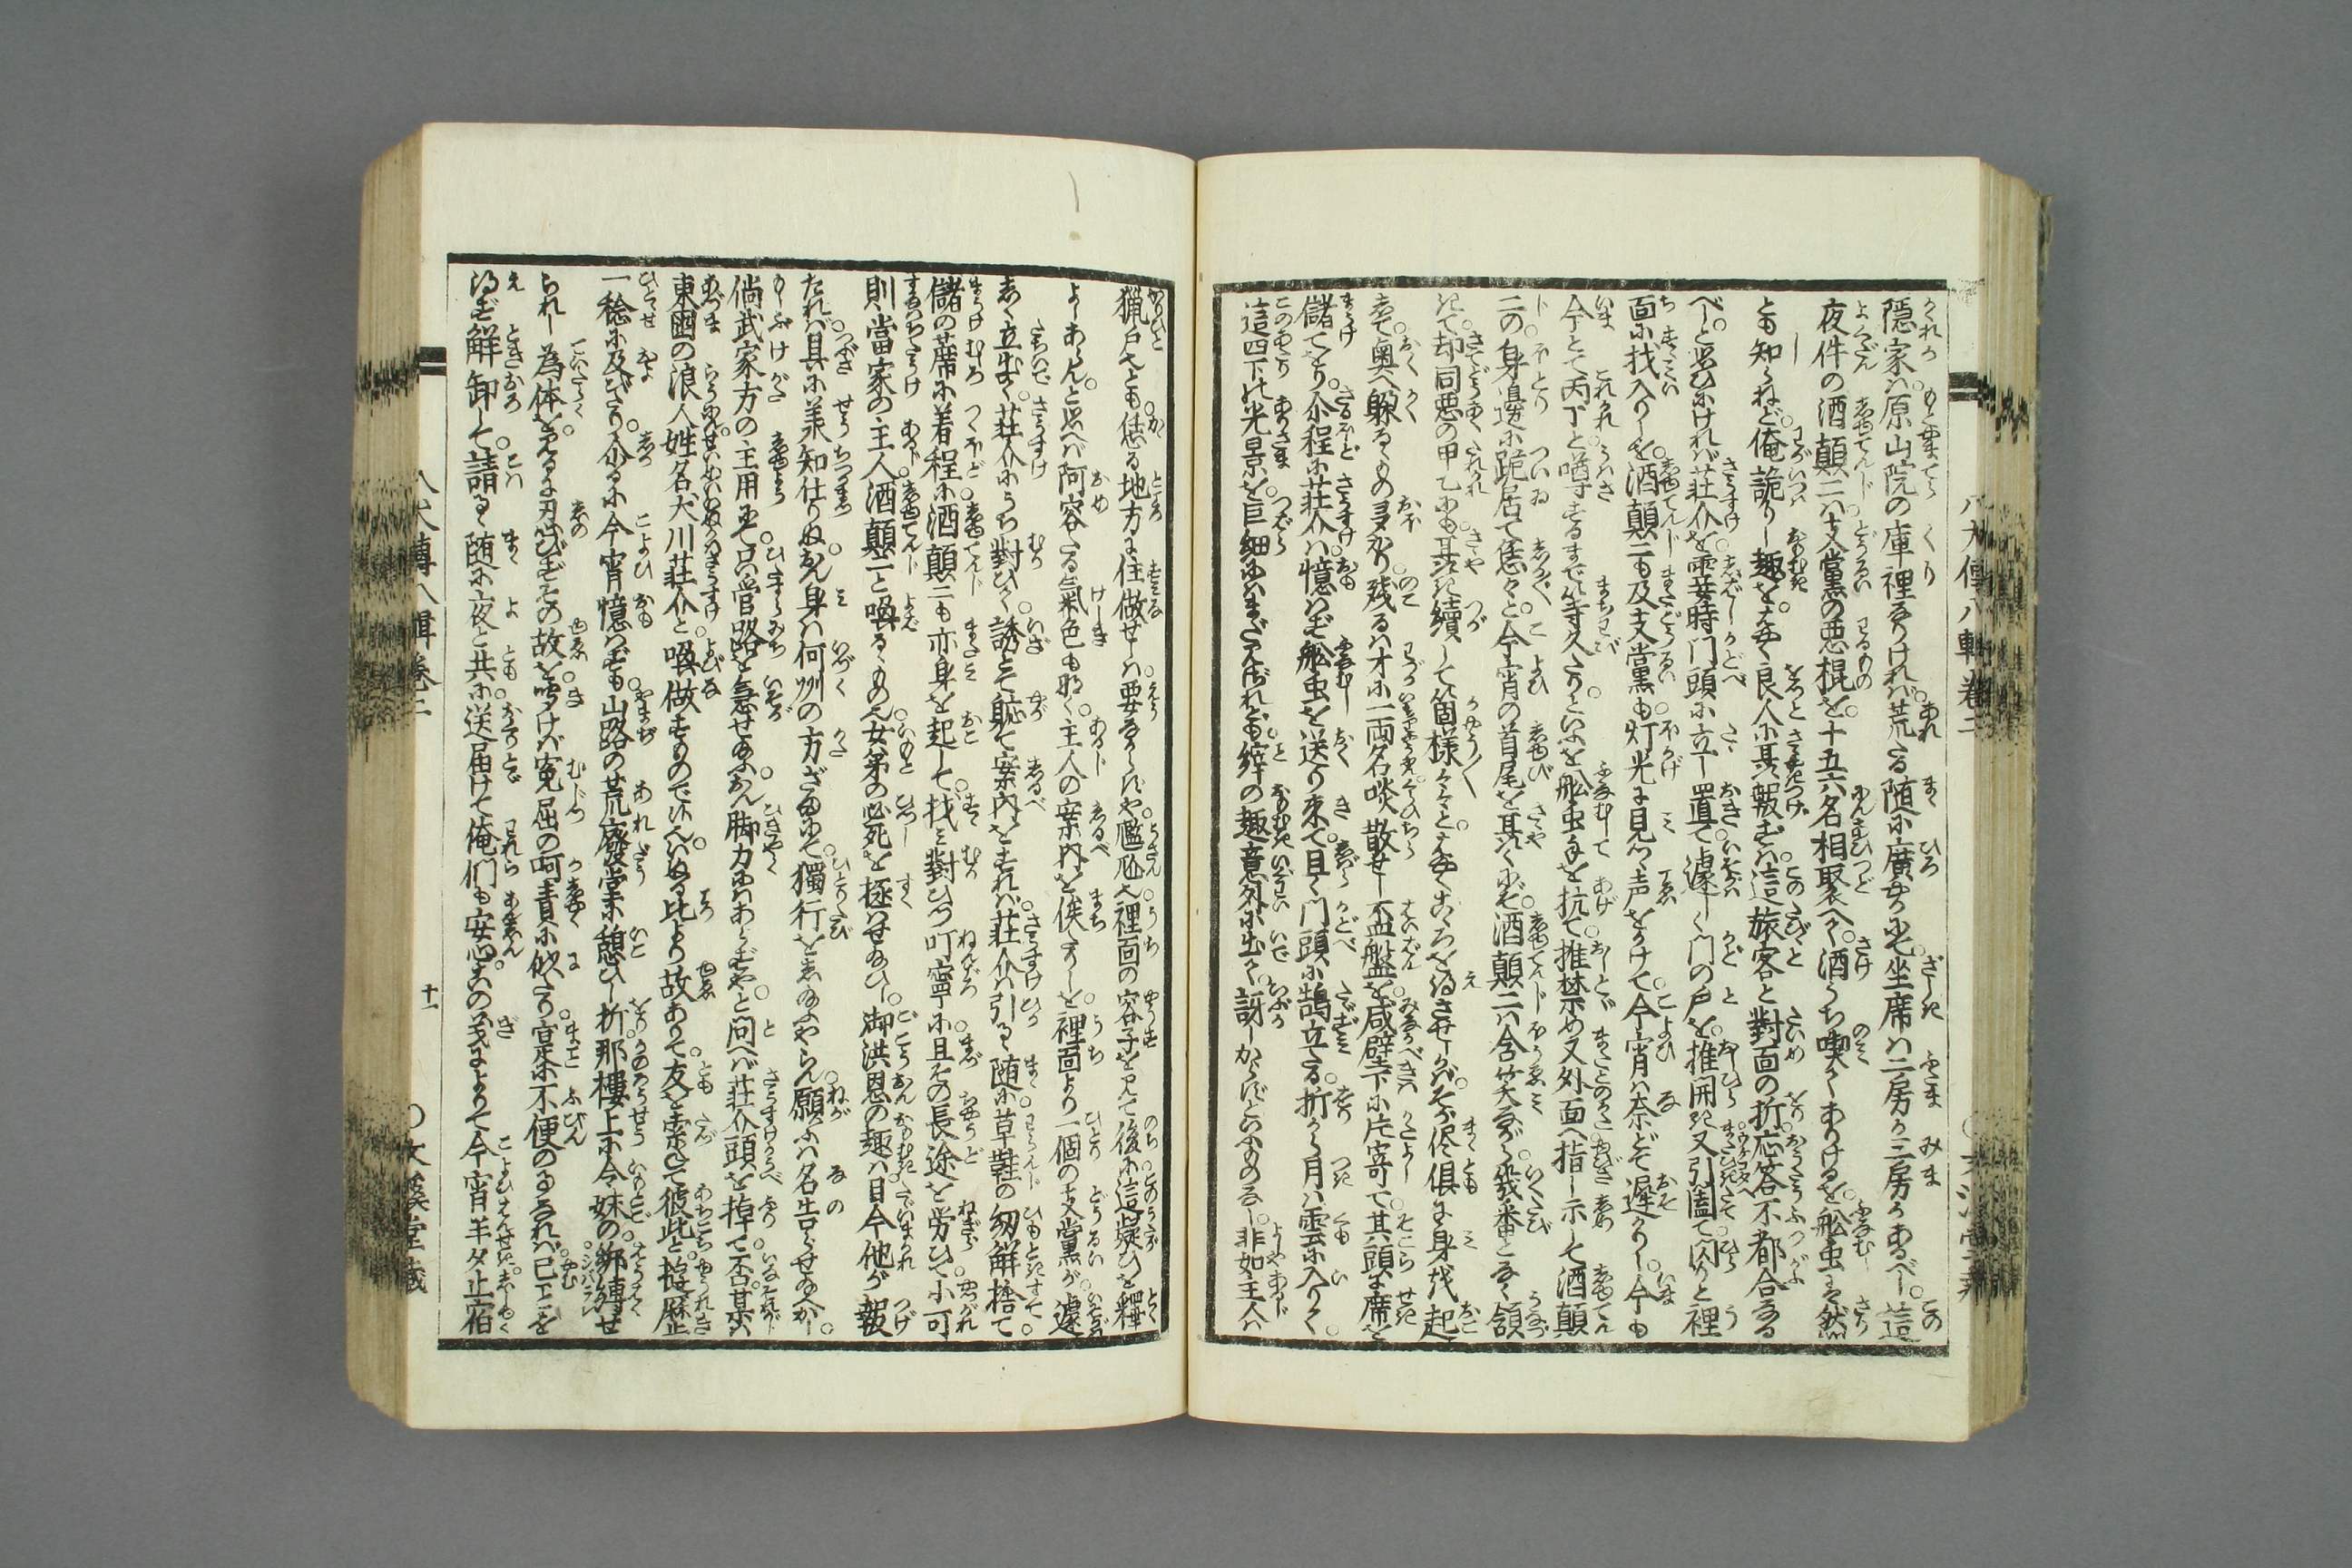 隠家は。原山院の庫裡なりければ。荒たる随に廣やかにて。坐席は二房か三房かあるべし。這
夜件の酒顛二は支黨の悪棍を。十五六名相聚へて。酒うち喫てありけるを。舩虫は然
とも知らねど。俺詭りし趣を。えよく良人に其報ずは。這旅客と對面の折。応答不都合なる
べし。と思ひにければ。荘介を霎時門頭に立し置て。遽しく門の戸を。推開き又引闔て。閃りと裡
面に找入りしを。酒顛二も及支黨も。灯光に見つゝ声をかけて。今宵は奈どて遅かりし。今も
今とて丙丁と噂するまで等久たり。といふを舩虫手を抗て推禁め又外面へ指し示して酒顛
二の身邊に跪居て恁々と。今宵の首尾を耳語くにぞ。酒顛二は含笑ながら。幾番となく頷
きて却同悪の甲乙にも耳語き續して。箇様々々と。よくこゝろを得させしかば。みな侭俱に身を起
して。奥へ躱るゝもの多かり。残るは才に一両名。啖散せし盃盤を。咸壁下に片寄て。其頭に席を
儲てをり。介程に荘介は。憶はず舩虫を送り来て。且く門頭に鵠立たる。折から月は雲に入りて。
這四下の光景を。巨細にはまだ見ざれども。縡の趣意外に出て。訝しからずといふものなし。非如主人は
猟戸也とも。恁る地方に住做せしは。要ならずや。胡論也。裡面の容子を見て後に。這疑ひを釋
よしあらん。と思へば阿容たる氣色も那く。主人の案内を俟たりしを。裡面より一個の支黨が。遽
しく立出て。荘介にうち對ひて。誘とて軈て案内をすれば。荘介は引るゝ随に。草鞋の紐解捨て。
儲の席に着程に。酒顛二も亦身を起して。找み對ひつ叮寧に。且その長途を労ひて。小可
則當家の主人。酒顛二と喚るゝもの也。女弟の必死を極はせ給ひし。御洪恩の趣は。目今他が報
たれば。具に兼知仕りぬ。おん身は何州の方ざまにて。獨行をし給ふやらん。願ふは名告らせ給へかし。
倘武家方の主用にて。只管路を急せ給ふ。おん脚力にはあらずや。と問へば荘介頭を掉て。否某は
東國の浪人。姓名犬川荘介と。喚做すものでは候へ。いぬる比より故ありて。友を索ねて彼此と。遊歴
一稔に及びたり。介るに今宵憶はずも。山路の荒廃堂に憩ひし折。那樓上に令妹の。綁縛せ
られし為体を。見るに忍びずその故を。听けば寃屈の呵責に似たり。寔に不便の事なれば。已ことを
得ず解卸して。請るゝ随に夜と共に。送届けて俺們も安心。この義によりて今宵半夕止宿
八犬傳八輯巻二
十一
○文溪堂藏